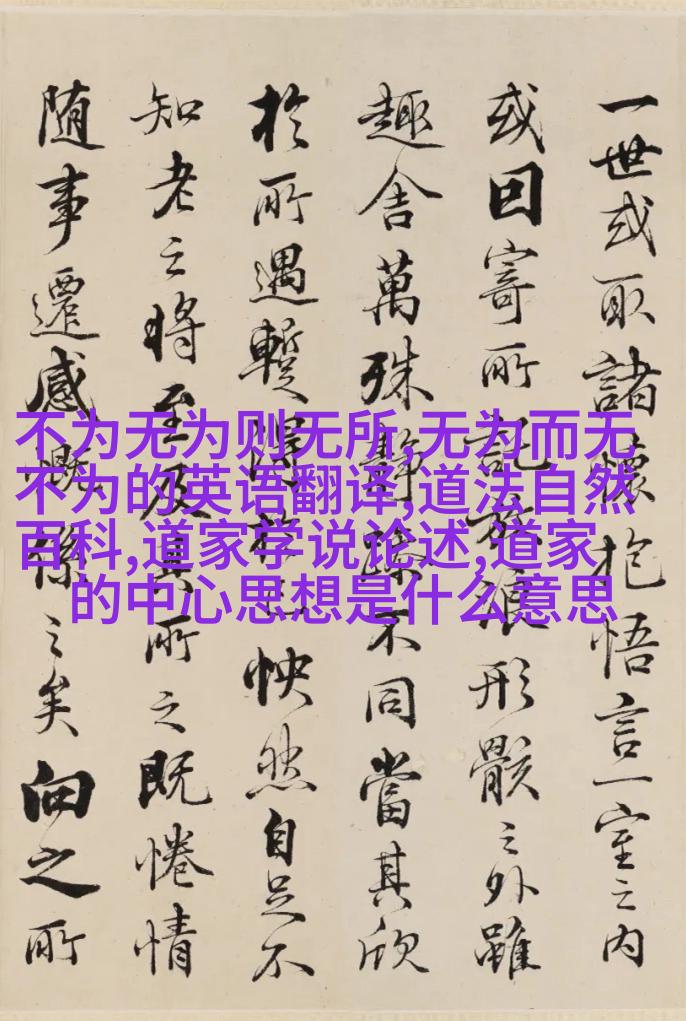 一世或取諸懷抱悟言一室之內
或因寄所託放浪形骸之外雖
趣舍萬殊靜躁不同當其欣
於所遇蹔得於己怏然自足不
知老之將至及其所之既惓情
隨事遷感慨係之矣向之所
不为无为则无所,无为而无
不为的英语翻译,道法自然
百科,道家学说论述,道家
的中心思想是什么意思